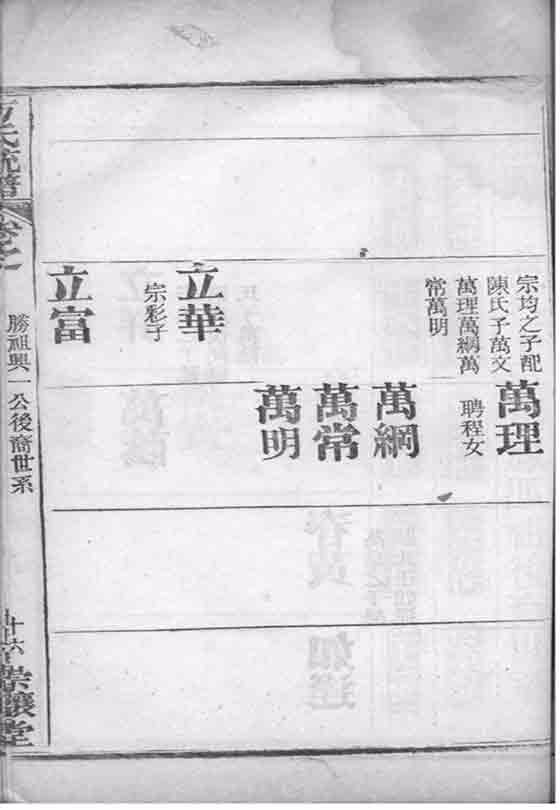 宗均之子配
陳氏子萬文
萬理萬綱萬
常萬明
立華
宗彩子
立富
萬理
聘程女
萬綱
萬常
萬明
氏統譜
勝祖興一公後裔世系
十六
堂